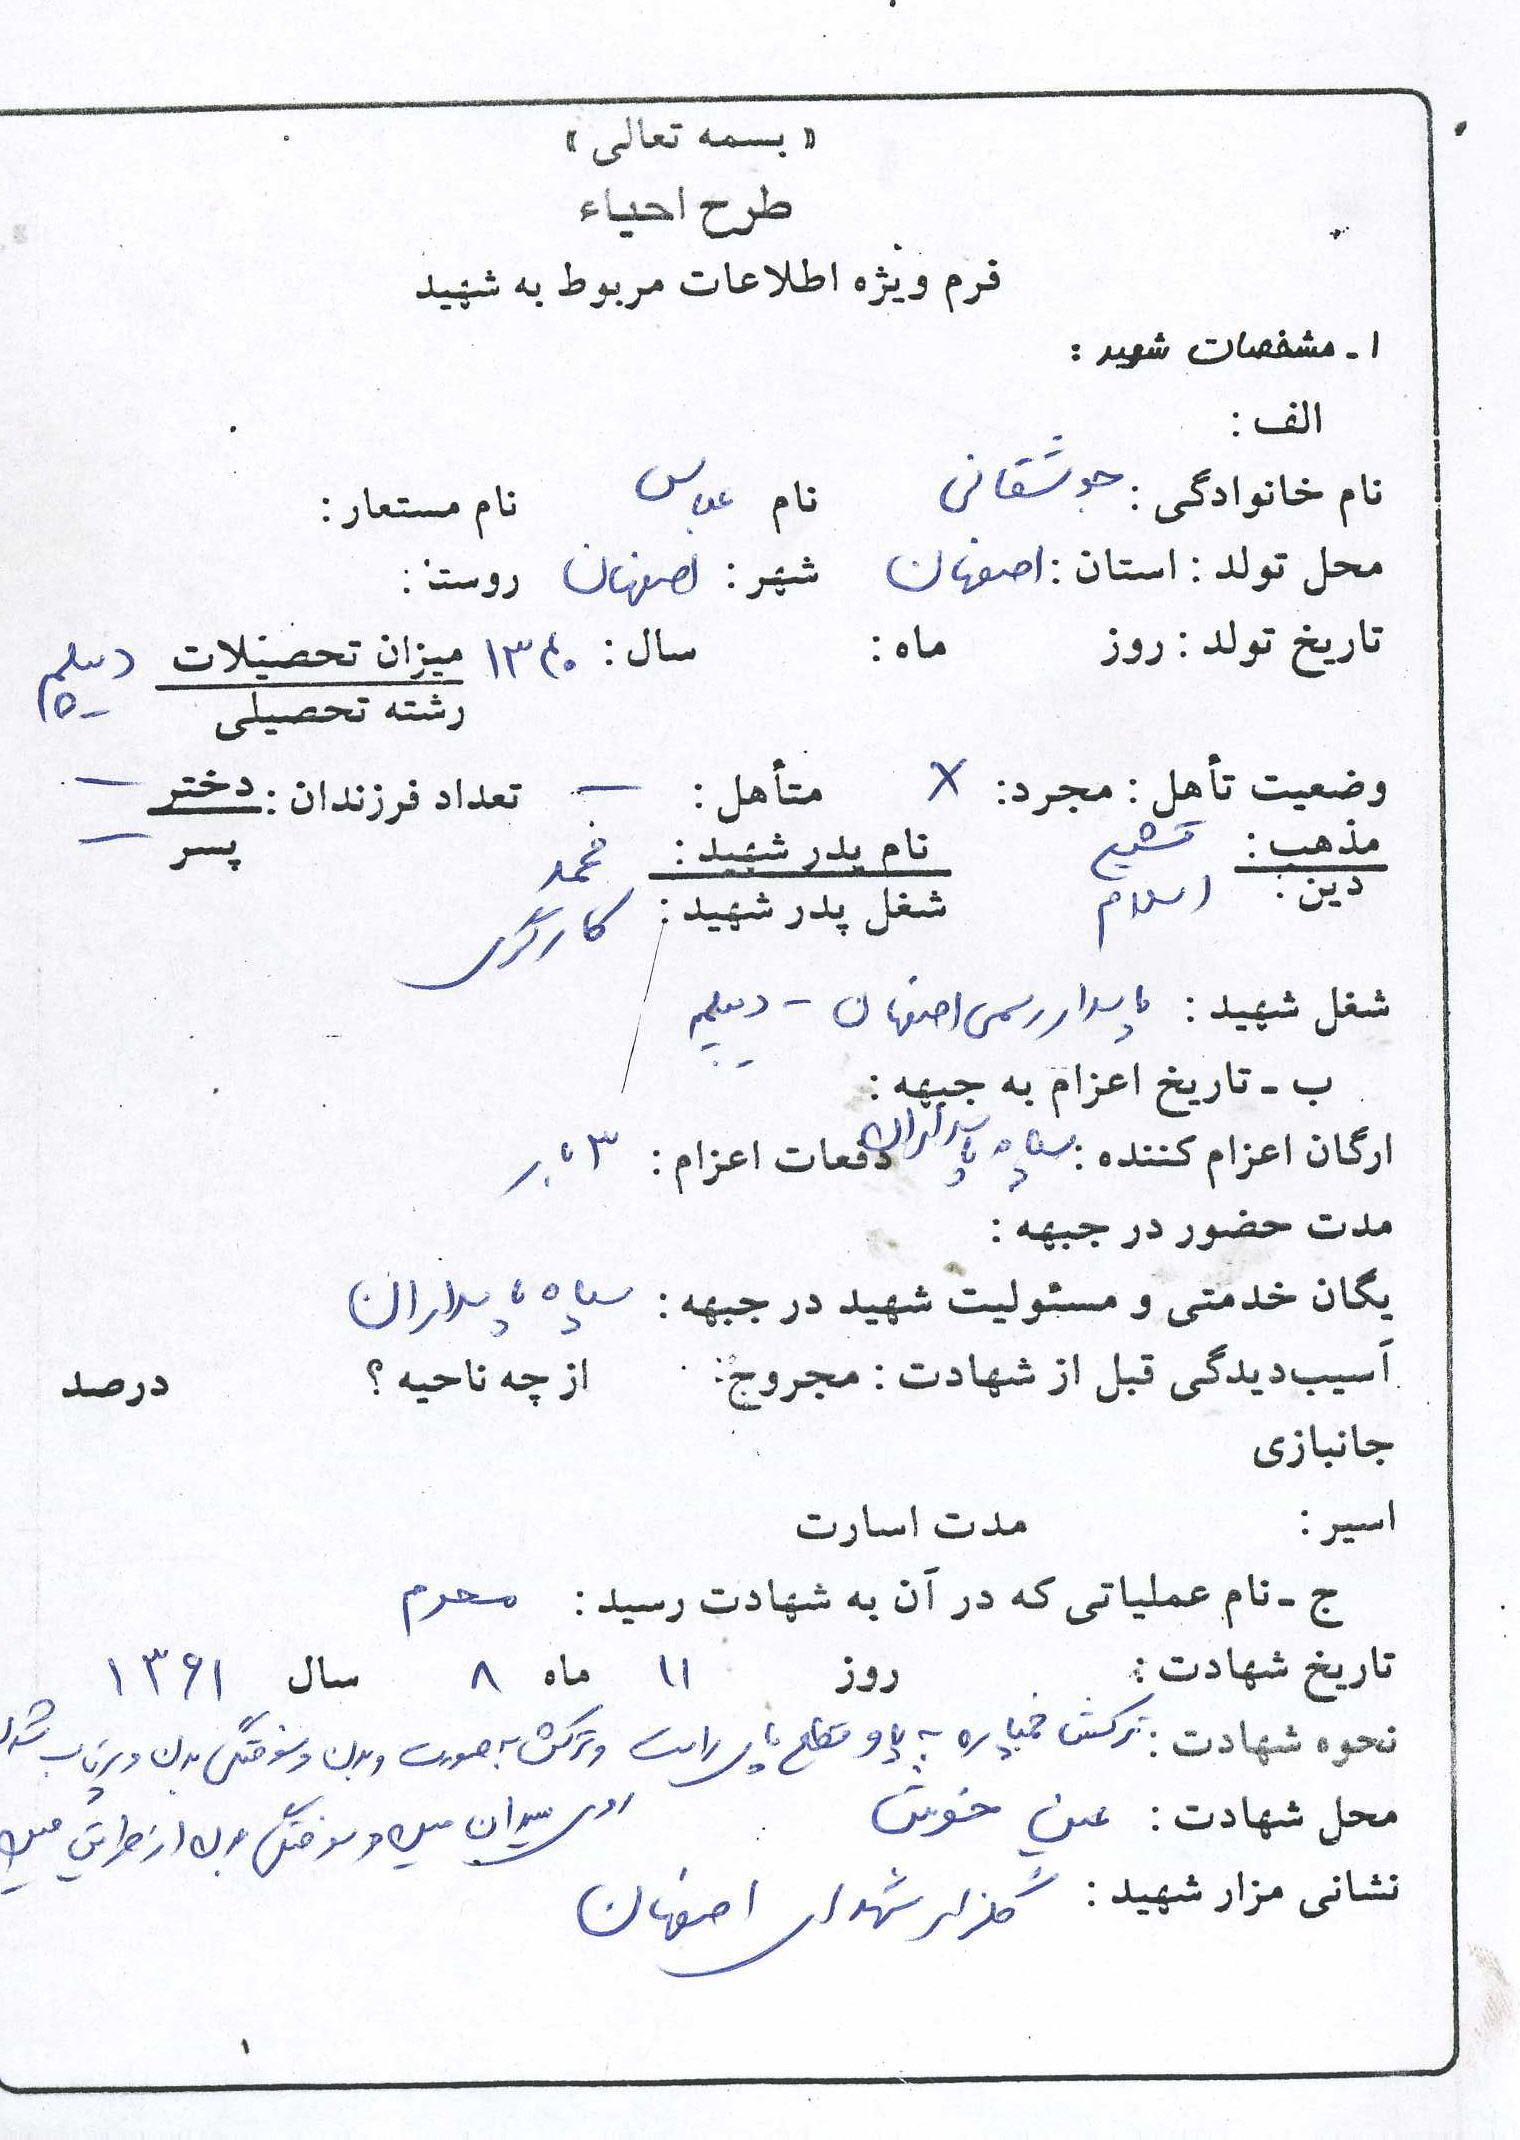 « بسمه تعالی »
طرح احیاء
فرم ویژه اطلاعات مربوط به شهید
۱ـ مشخصات شهید :
الف :
نام خانوادگی : جوشقانی نام عباس نام مستعار :
محل تولد : استان : اصفهان شهر : اصفهان روستا :
تاریخ تولد : روز ماه : سال : ۱۳۴۰ میزان تحصیلات دیپلم
رشته تحصیلی
وضعیت تأهل : مجرد : X متأهل : — تعداد فرزندان : دختر —
پسر —
مذهب : تشیع نام پدر شهید : محمد
دین : اسلام شغل پدر شهید : کارگری
شغل شهید : پاسدار رسمی اصفهان – دیپلم
ب ـ تاریخ اعزام به جبهه :
ارگان اعزام کننده : سپاه پاسداران دفعات اعزام : ۳ بار
مدت حضور در جبهه :
یگان خدمتی و مسئولیت شهید در جبهه : سپاه پاسداران
آسیب‌دیدگی قبل از شهادت : مجروح : از چه ناحیه ؟ درصد
جانبازی
اسیر : مدت اسارت
ج ـ نام عملیاتی که در آن به شهادت رسید : محرم
تاریخ شهادت : روز ۱۱ ماه ۸ سال ۱۳۶۱
نحوه شهادت : ترکش خمپاره به پا و قطع پای راست و ترکش به صورت و بدن و سوختگی بدن و پرتاب شدن
روی میدان مین و سوختگی بدن از طریق مین
محل شهادت : عین خوش
نشانی مزار شهید : گلزار شهدای اصفهان
۱